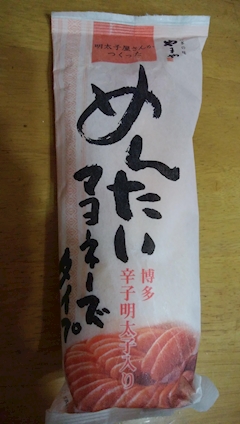 明太子屋さんが
つくった
やまや
めんたい
マヨネーズ
タイプ
博多
辛子明太子入り